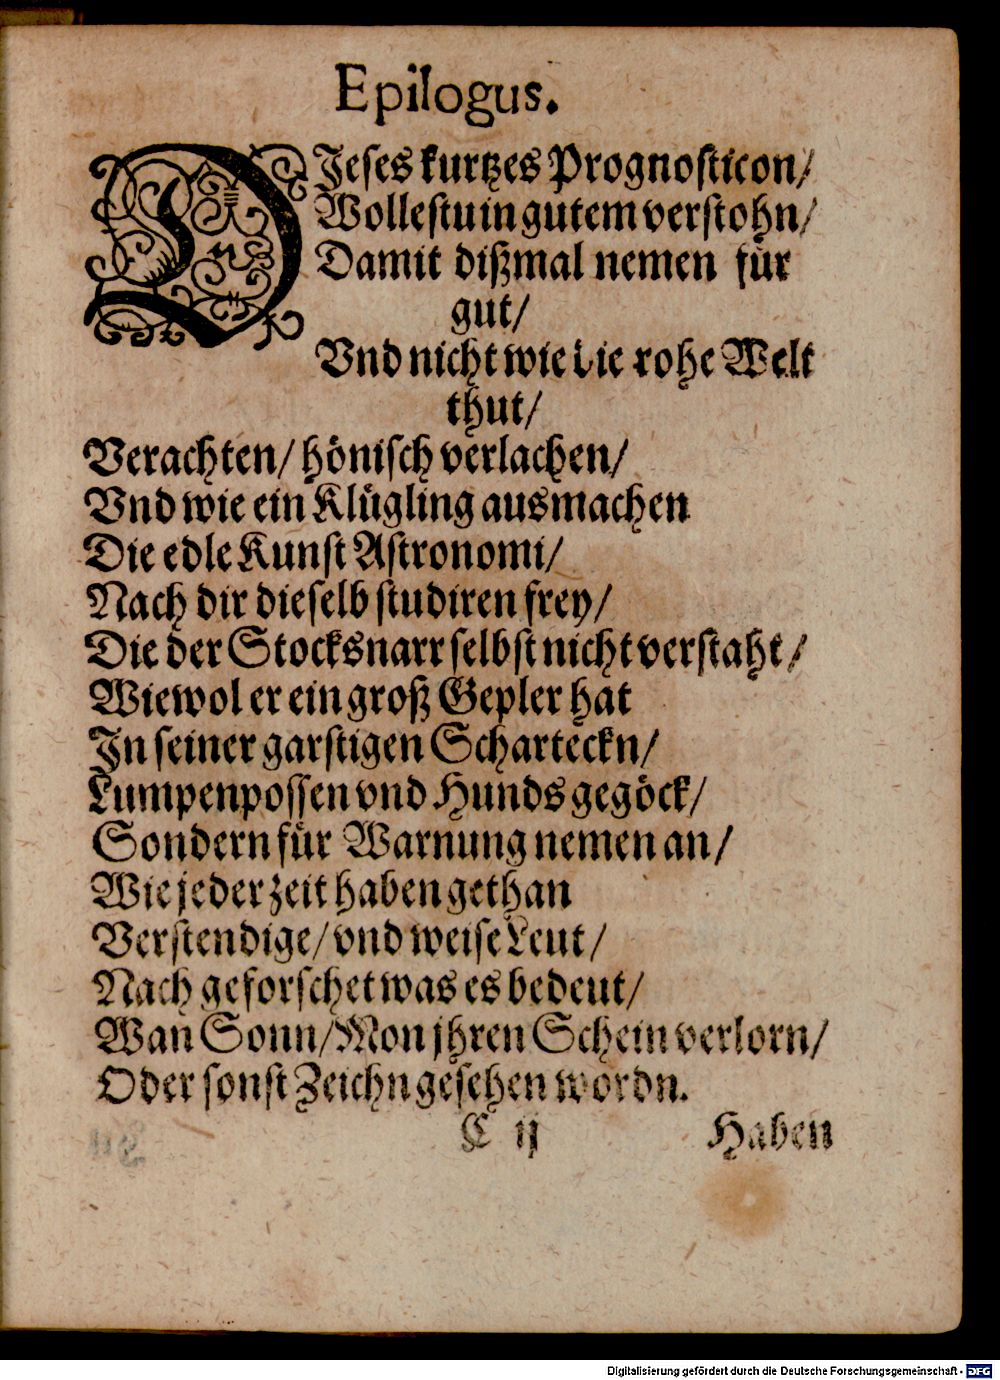 Epilogus.
DJeses kurtzes Prognosticon/
Wollestu in gutem verstohn/
Damit dißmal nemen für
gut/
Vnd nicht wie die rohe Welt
thut/
Verachten/ hönisch verlachen/
Vnd wie ein Klügling ausmachen
Die edle Kunst Astronomi/
Nach dir dieselb studiren frey/
Die der Stocksnarr selbst nicht verstaht/
Wiewol er ein groß Gepler hat
Jn seiner garstigen Scharteckn/
Lumpenpossen vnd Hunds gegöck/
Sondern für Warnung nemen an/
Wie jeder zeit haben gethan
Verstendige/ vnd weise Leut/
Nach geforschet was es bedeut/
Wan Sonn/ Mon jhren Schein verlorn/
Oder sonst Zeichn gesehen wordn.
C ij Haben
Digitalisierung gefördert durch die Deutsche Forschungsgemeinschaft - DFG